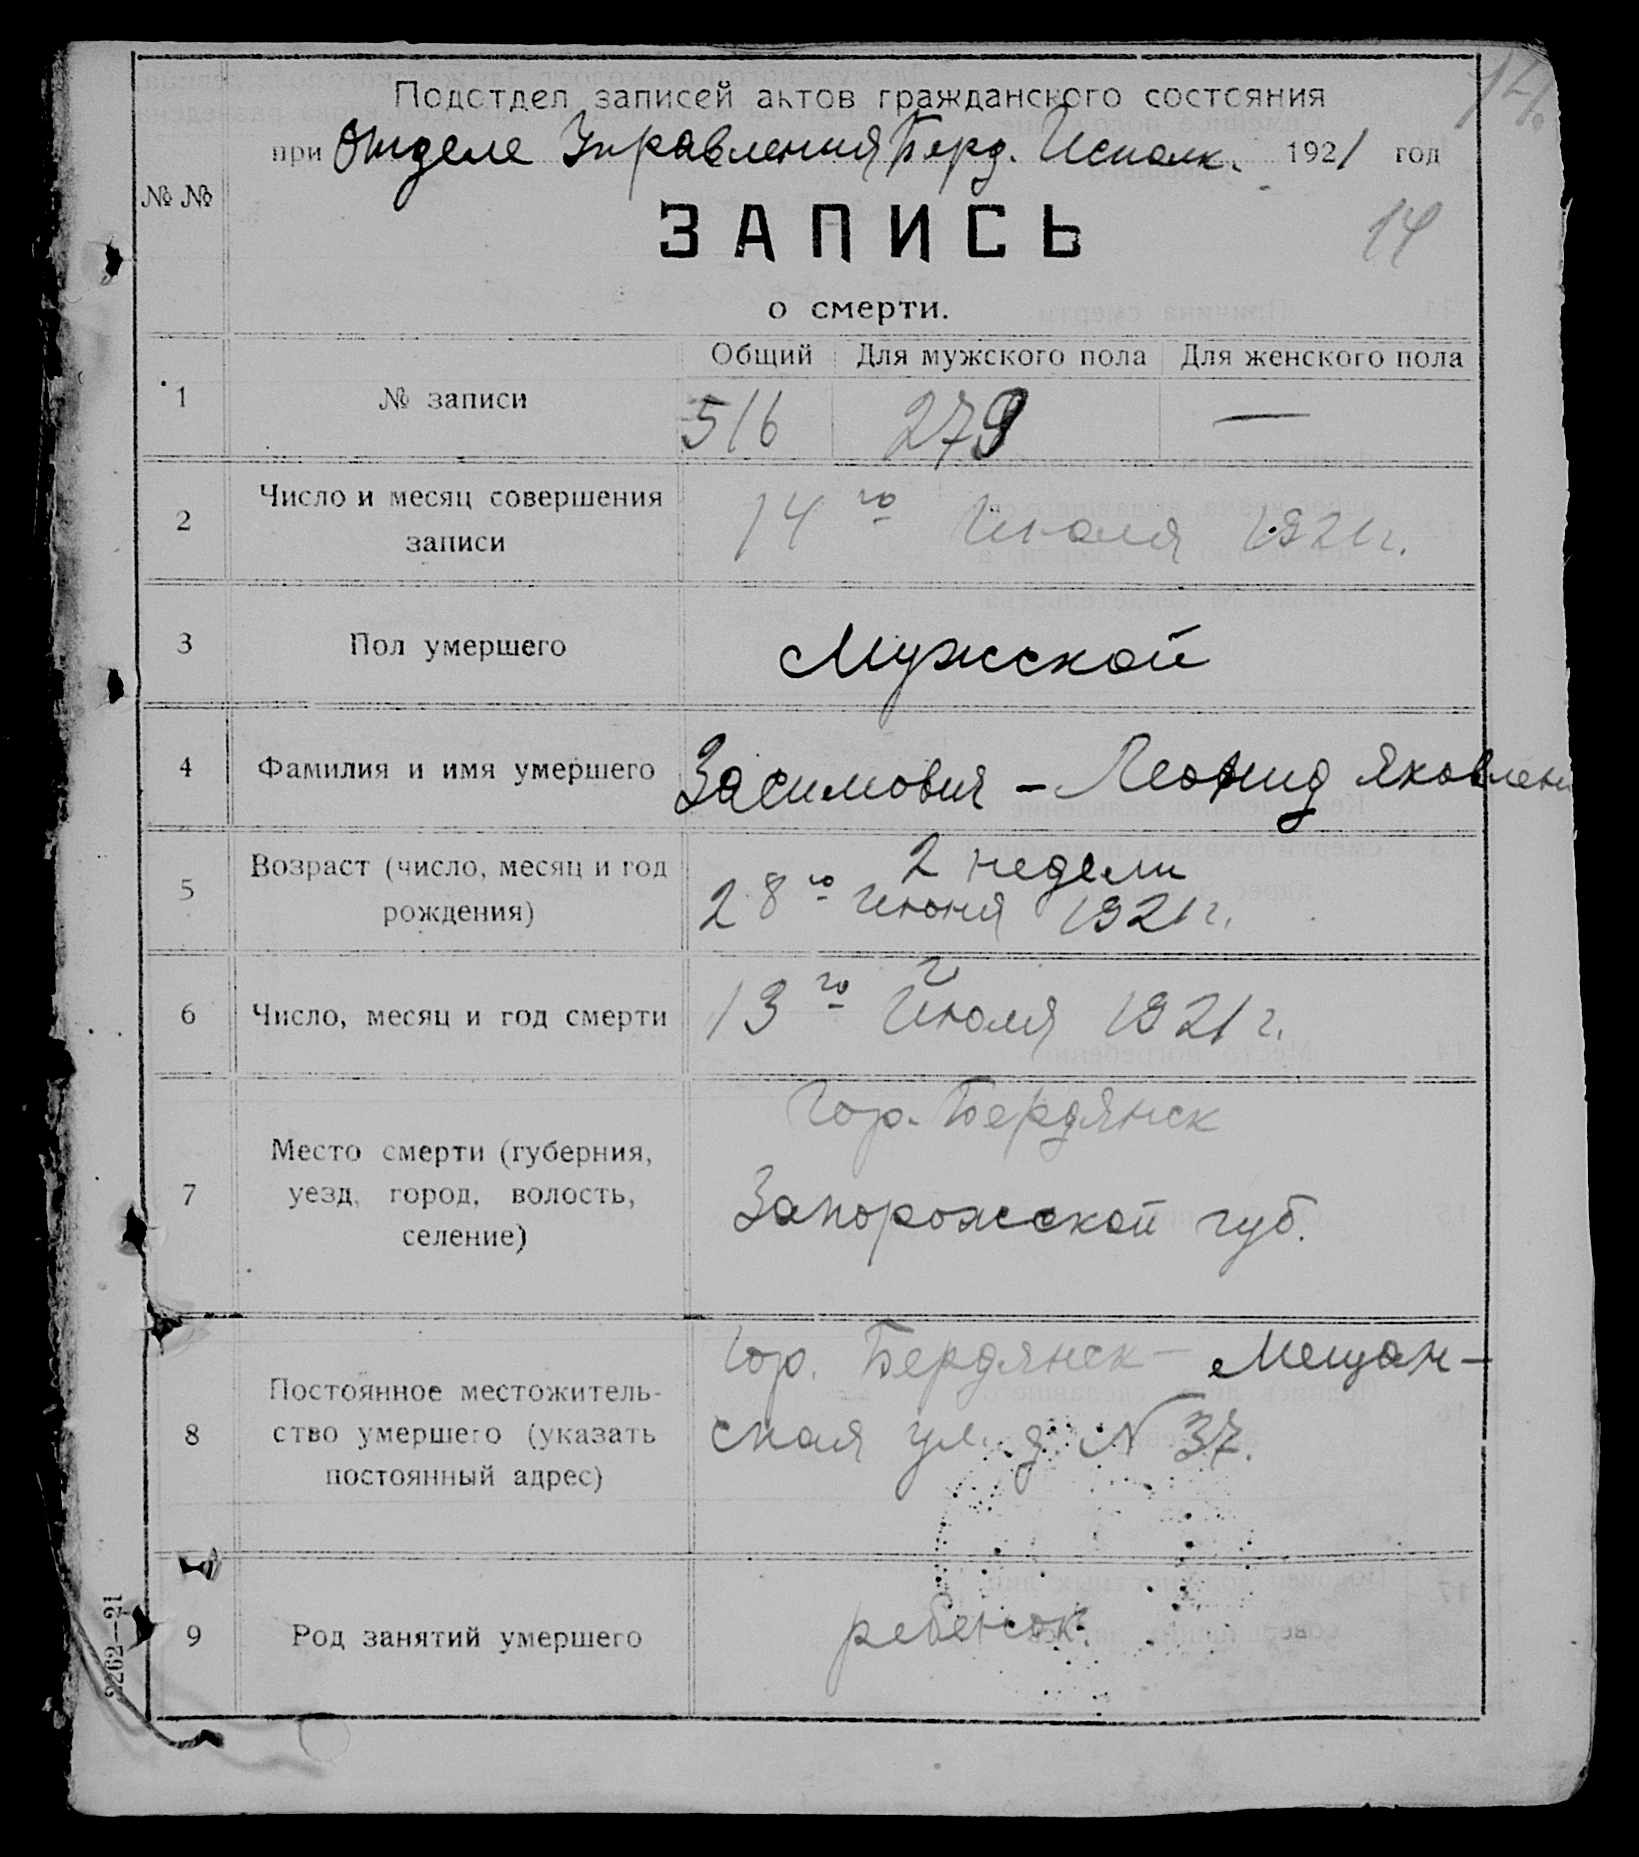 14.
Подотдел записей актов гражданского состояния
при Отделе Управления Берд. Исполк. 1921 год
№ №
14
ЗАПИСЬ
о смерти.
Общий Для мужского пола Для женского пола
1 № записи 516 279 —
2 Число и месяц совершения
записи
14го Июля 1921 г.
3 Пол умершего Мужской
4 Фамилия и имя умершего Засимович – Леонид Яковлев
5 Возраст (число, месяц и год
рождения)
2 недели
28го июня 1921 г.
6 Число, месяц и год смерти 13го Июля 1921 г.
7 Место смерти (губерния,
уезд, город, волость,
селение)
Гор. Бердянск
Запорожской губ.
8 Постоянное местожитель-
ство умершего (указать
постоянный адрес)
Гор. Бердянск – Мещан-
ская ул. д. N 37.
9 Род занятий умершего ребенок
2262—21